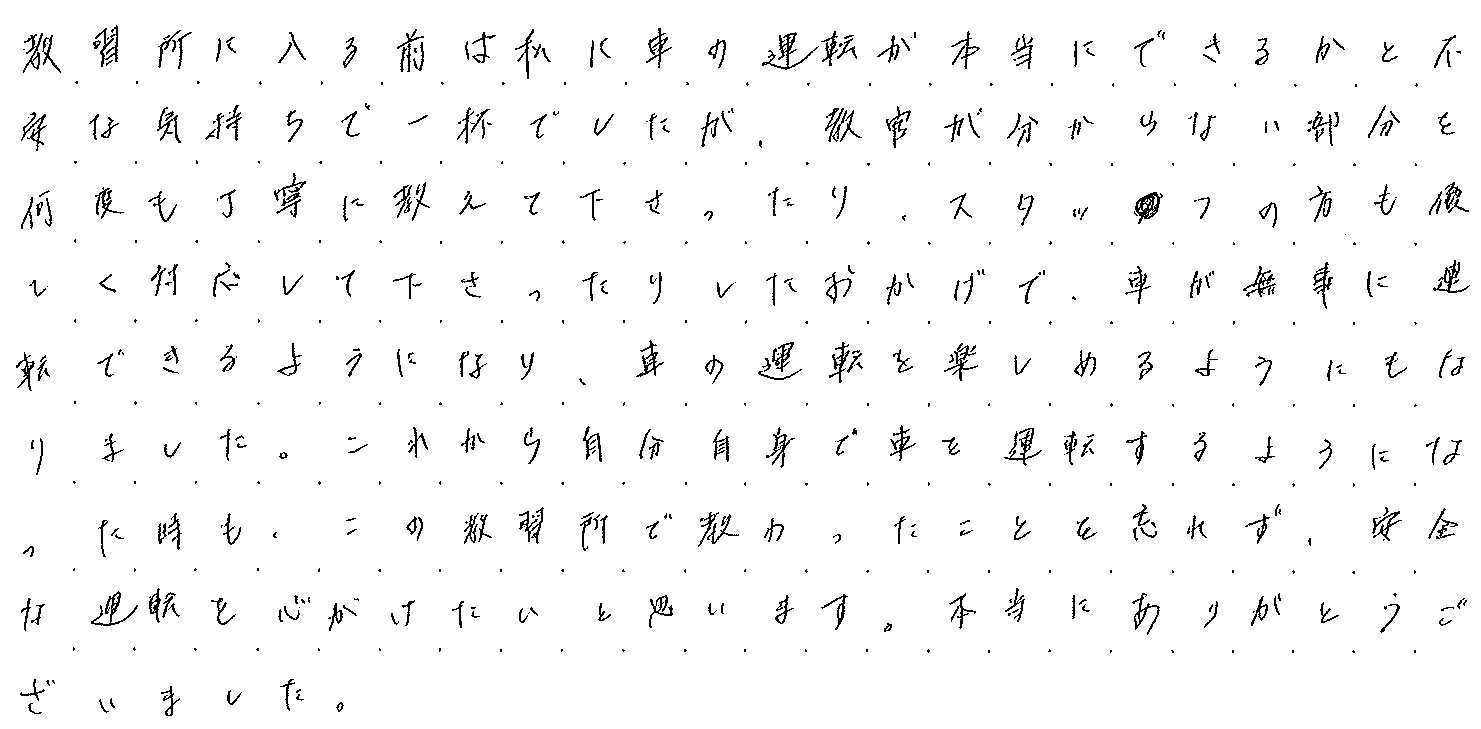 教習所に入る前は私に車の運転が本当にできるかと不
安な気持ちで一杯でしたが、教官が分からない部分を
何度も丁寧に教えて下さったり、スタッフの方も優
しく対応して下さったりしたおかげで、車が無事に運
転できるようになり、車の運転を楽しめるようにもな
りました。これから自分自身で車を運転するようにな
った時も、この教習所で教わったことを忘れず、安全
な運転を心がけたいと思います。本当にありがとうご
ざいました。